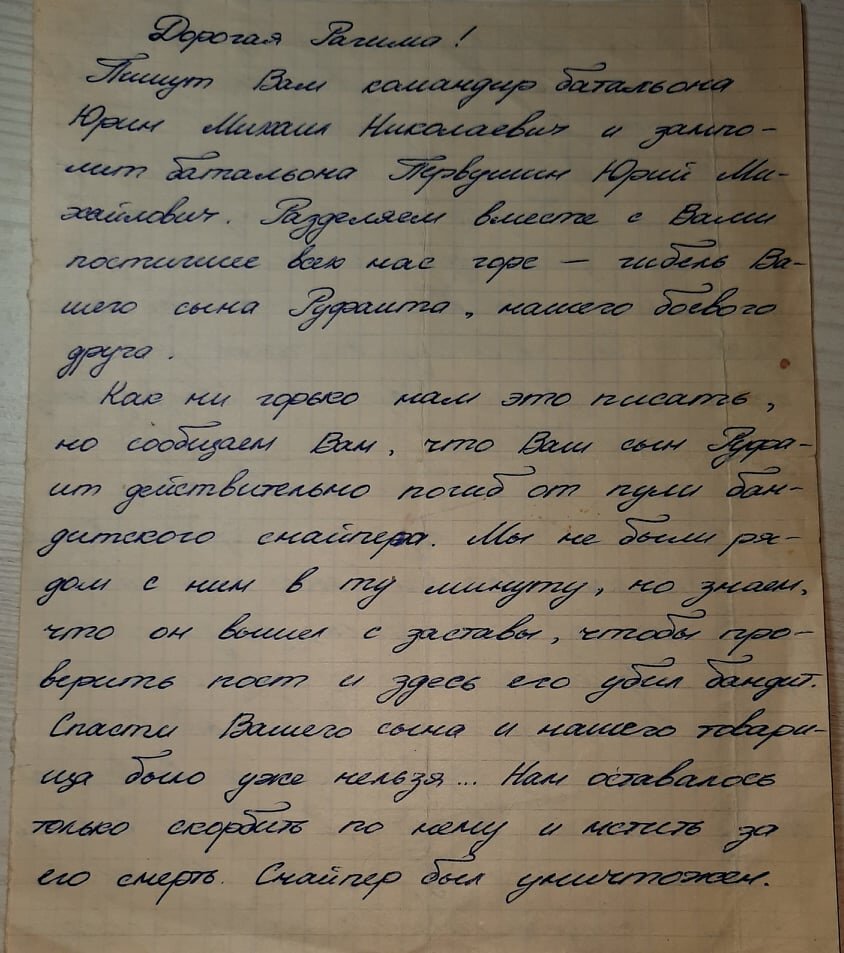 Дорогая Рагима!
Пишут Вам командир батальона
Юрин Михаил Николаевич и зампо-
лит батальона Первушин Юрий Ми-
хайлович. Разделяем вместе с Вами
постигшее всех нас горе — гибель Ва-
шего сына Руфаита, нашего боевого
друга.
Как ни горько нам это писать,
но сообщаем Вам, что Ваш сын Руфа-
ит действительно погиб от пули бан-
дитского снайпера. Мы не были ря-
дом с ним в ту минуту, но знаем,
что он вышел с заставы, чтобы про-
верить пост и здесь его убил бандит.
Спасти Вашего сына и нашего товари-
ща было уже нельзя... Нам оставалось
только скорбить по нему и мстить за
его смерть. Снайпер был уничтожен.